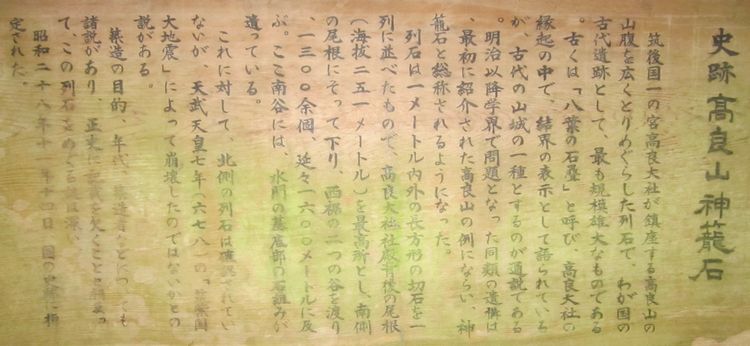 史跡 高良山神籠石
筑後国一の宮高良大社が鎮座する高良山の
山腹を広くとりめぐらした列石で、わが国の
古代遺跡として、最も規模雄大なものである
。古くは「八葉の石畳」と呼び、高良大社の
縁起の中で、結界の表示として語られている
が、古代の山城の一種とするのが通説である
。明治以降学界で問題となった同類の遺構は
、最初に紹介された高良山の例にならい、神
籠石と総称されるようになった。
列石は一メートル内外の長方形の切石を一
列に並べたもので、高良大社社殿背後の尾根
(海抜二五一メートル)を最高所とし、南側
の尾根にそって下り、西裾の二つの谷を渡り
、一三〇〇余個、延々一六〇〇メートルに及
ぶ。ここ南谷には、水門の基底部の石組みが
遺っている。
これに対して、北側の列石は確認されてい
ないが、天武天皇七年(六七八)の「筑紫国
大地震」によって崩壊したのではないかとの
説がある。
築造の目的 年代 造者などについても
諸説があり 正史に記載を欠くことと相まっ
て、この列石をめぐる
昭和二十八年十 月十四日 国の史跡に指
定された。